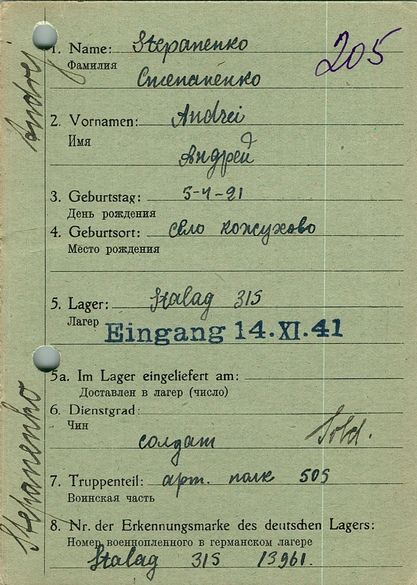 205
1. Name: Stepanenko
Фамилия
Степаненко
2. Vornamen: Andrei
Имя
Андрей
3. Geburtstag: 5-4-21
День рождения
4. Geburtsort: село кожухово
Место рождения
5. Lager: Stalag 315
Лагер
Eingang 14.XI.41
5a. Im Lager eingeliefert am:
Доставлен в лагер (число)
6. Dienstgrad:
Чин
солдат Sold.
7. Truppenteil: арт. полк 505
Воинская часть
8. Nr. der Erkennungsmarke des deutschen Lagers:
Номер военнопленного в германском лагере
Stalag 315 13961.
Stepanenko Andrej